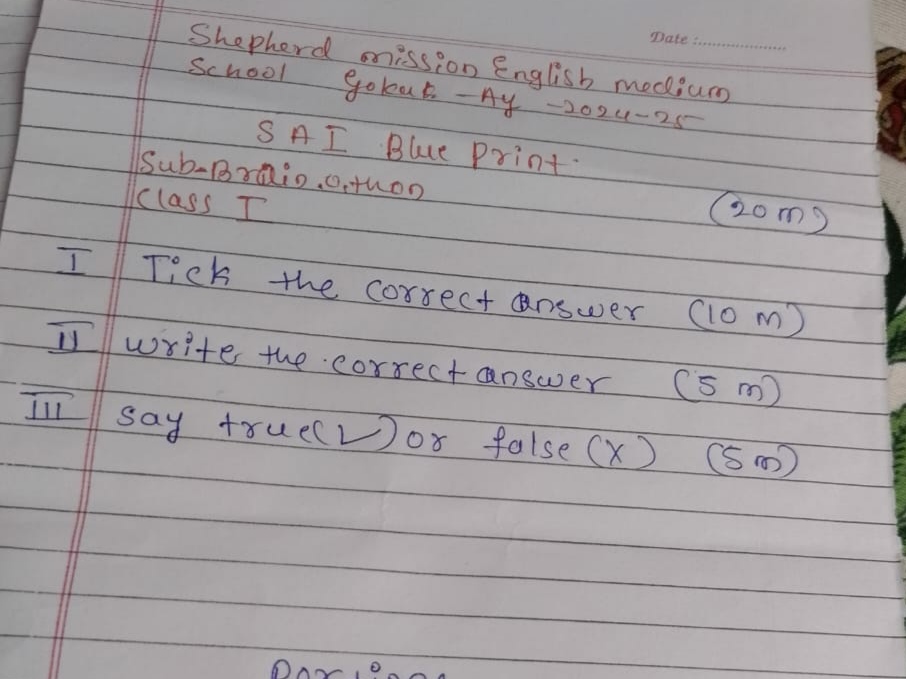 Date :
Shepherd mission English medium
School Gokak - Ay - 2024-25
SAI Blue Print.
Sub-Brain.o.thon
Class I (20 m)
I Tick the correct answer (10 m)
II write the correct answer (5 m)
III say true (✓) or false (X) (5 m)